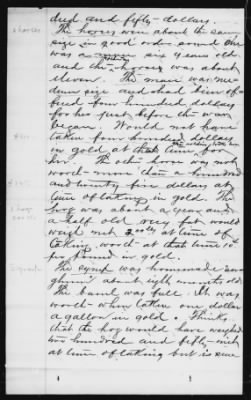 dred and fifty-dollars.
The horses were about the same
size in good order sound One
was a six years old
and the horse was about
eleven. The mare was me-
dium size and shad been of-
fered four hundred dollars
for her just before the war
began. Would not have
taken four hundred dollars
in gold at that time for
her. The other horse was not
worth more than a hundred
and twenty five dollars at
time of taking in gold. The
hog was about a year and
a half old very fat would
weigh net 200 lbs at time of
taking worth at that time 10¢
per pound in gold.
The syrup was homemade sor-
ghum about eight months old
The barrel was full. It was
worth when taken one dollar
a gallon in gold. Thinks
that the hog would have weighed
two hundred and fifty nett
at time of taking but is sure